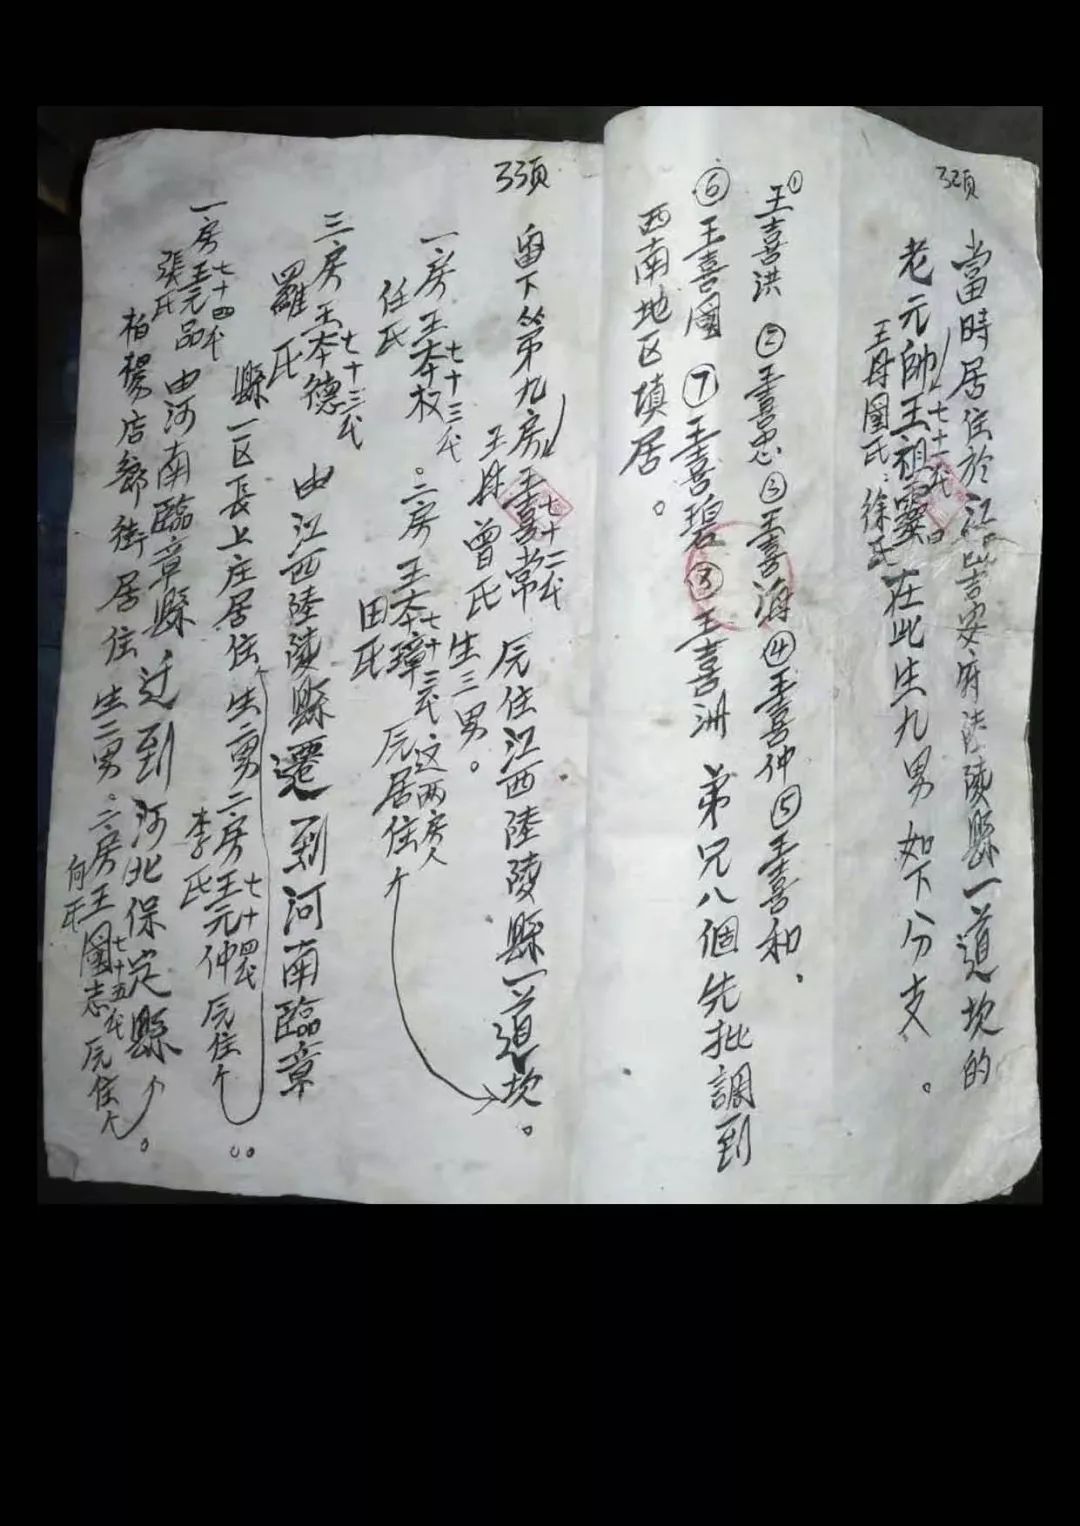 32頁
當時居住於江西吉安府陸陵縣一道坎的
老元帥王祖靈在此生九男如下分支。
七十一代
王母國氏：徐氏
①王喜洪②王喜忠③王喜海④王喜仲⑤王喜和、
⑥王喜國⑦王喜碧⑧王喜洲弟兄八個先批調到
西南地区填居。
33頁
留下第九房王喜常辰住江西陸陵縣一道坎。
七十二代
王母曾氏生三男。
一房王本权。二房王本璋辰居住个
七十三代
七十三代这两房人
任氏
田氏
三房王本德由江西陸陵縣遷到河南臨章
七十三代
羅氏
縣一区長上庄居住生二男二房王元仲辰住个
七十四代
李氏
一房王元品由河南臨章縣迁到河北保定縣
七十四代
張氏
柏楊店鄉街居住生二男。二房王國志辰住个。
七十五代
向氏